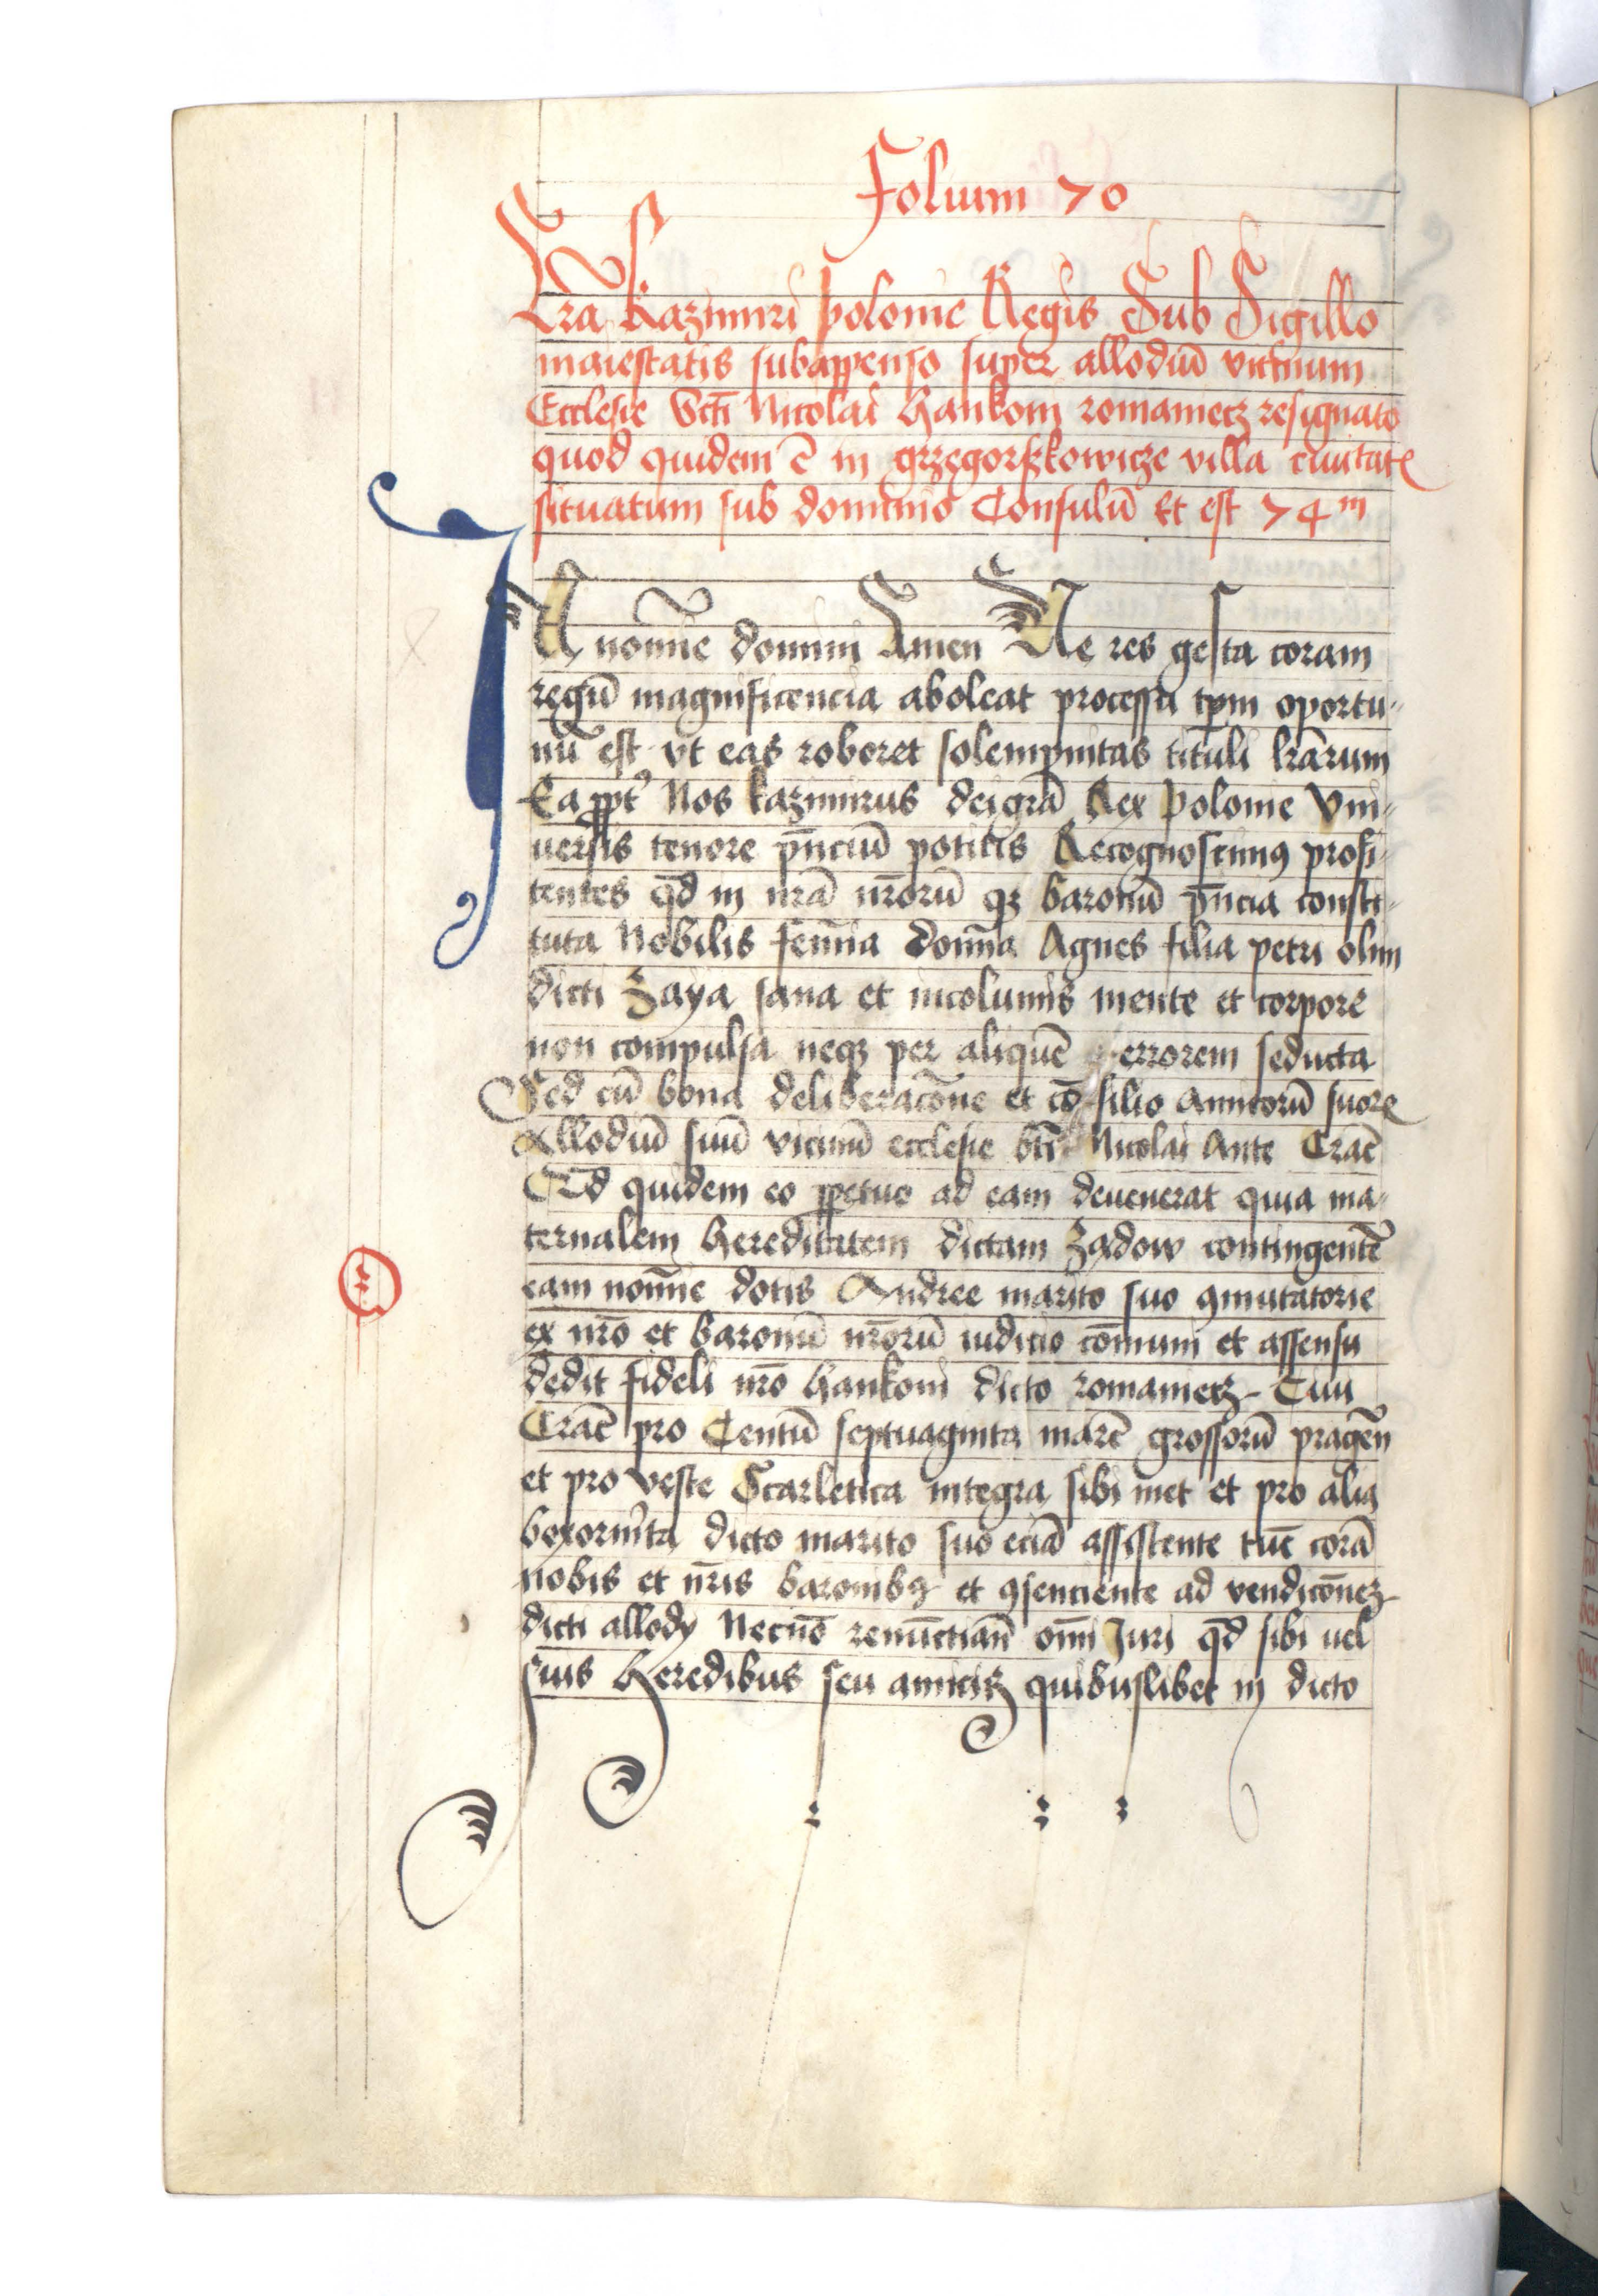 Folium 70
Lr̄a Kazimiri polonie Regis Sub Sigillo
maiestatis subappenso super allodiū vicinum
Ecclesie Sc̄ti Nicolai hankoni romanietz resignato
quod quidem ē in grzegorzkowicze villa ciuitatꝭ
situatum sub dominio Consulū Et est 74 m
In nomīe domini Amen Ne res gesta coram
regū magnificencia aboleat processu tp̄m oportu-
nū est vt eas roboret solempnitas tituli lr̄arum
Ea ꝓpt᷑ Nos kazimirus dei gr̄a Rex polonie Vni-
uersis tenore pn̄ciū potitis Recognoscimꝯ profi-
tentes qd̄ in nr̄a nr̄orū qꝫ baronū pn̄cia consti-
tuta Nobilis femīa domīa Agnes filia petri olim
dicti Zaya sana et incolumis mente et corpore
non compulsa neqꝫ per aliquē errorem seducta
Sed cū bona deliberacōne et cō silio amicorū suorꝭ
Allodiū suū vicinū ecclesie bt̄i Nicolai Ante Crac̄
Qd quidem eo ꝑpetuo ad eam deuenerat quia ma-
ternalem hereditatem dictam Zadow contingentē
eam nomīe dotis Andree marito suo ꝯmutatorie
ex nr̄o et baronū nr̄orū iudicio cōmuni et assensu
dedit fideli nr̄o hankoni dicto romanietz Ciui
Crac̄ pro Centū septuaginta marc̄ grossorū pragen̄
et pro veste Scarletica integra sibi met et pro alia
boxornita dicto marito suo eciā assistente tūc corā
nobis et nr̄is baronibꝯ et ꝯsenciente ad vendicōnez
dicti allody Necnō renūctian̄ om̄i Juri qd̄ sibi uel
suis heredibus seu amicis quibuslibet in dicto